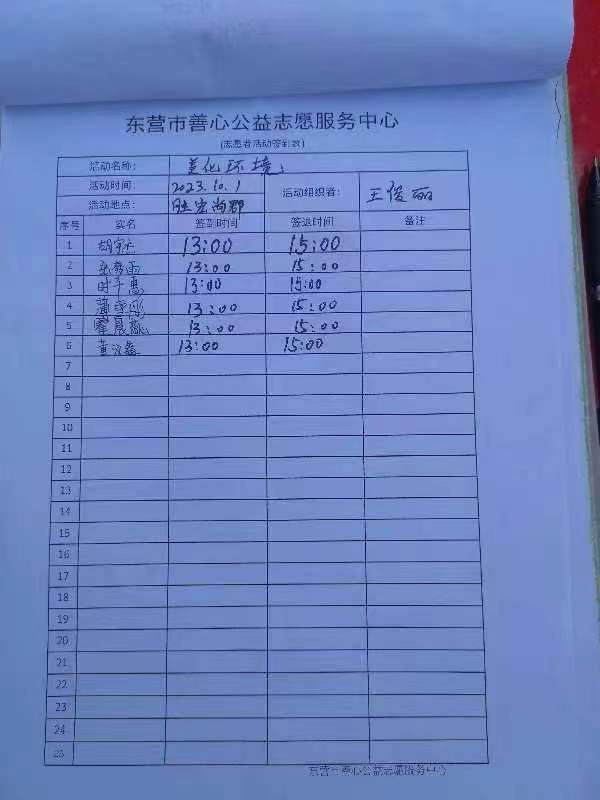 东营市善心公益志愿服务中心
(志愿者活动签到表)
活动名称: 美化环境
活动时间: 2023.10.1 活动组织者: 王俊丽
活动地点: 胜宏尚郡
序号 实名 签到时间 签退时间 备注
1 13:00 15:00
2 13:00 15:00
3 时子惠 13:00 15:00
4 13:00 15:00
5 13:00 15:00
6 13:00 15:00
7
8
9
10
11
12
13
14
15
16
17
18
19
20
21
22
23
24
25
东营市善心公益志愿服务中心